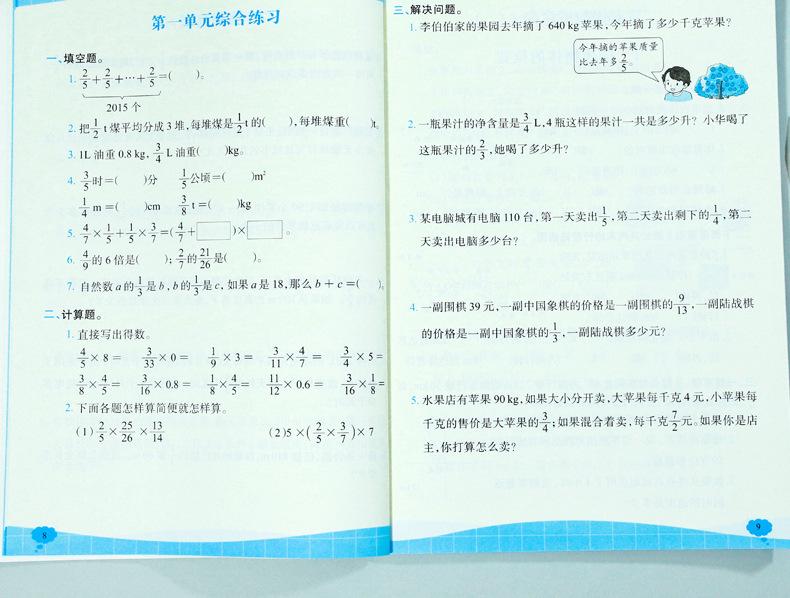 第一单元综合练习
一、填空题。
1. 2/5+2/5+…+2/5=(  )。
2015 个
2. 把1/2 t煤平均分成3堆,每堆煤是1/2 t的(  ),每堆煤重(  )t。
3. 1L油重0.8 kg, 3/4 L油重(  )kg。
4. 3/5时=(  )分 1/5公顷=(  )m²
1/4 m=(  )cm 3/8 t=(  )kg
5. 4/7×1/5+1/5×3/7=(4/7+□)×□。
6. 4/9的6倍是(  ); 2/7的21/26是(  )。
7. 自然数a的1/3是b,b的1/3是c,如果a是18,那么b+c=(  )。
二、计算题。
1. 直接写出得数。
4/5×8= 3/33×0= 1/9×3= 3/11×4/7= 3/4×5=
3/8×4/5= 3/16×0.8= 1/8×4/5= 11/12×0.6= 3/16×1/8=
2. 下面各题怎样算简便就怎样算。
(1) 2/5×25/26×13/14 (2) 5×(2/5×3/7)×7
8
三、解决问题。
1. 李伯伯家的果园去年摘了640 kg苹果,今年摘了多少千克苹果?
今年摘的苹果质量
比去年多2/5。
2. 一瓶果汁的净含量是3/4 L,4瓶这样的果汁一共是多少升? 小华喝了
这瓶果汁的2/3,她喝了多少升?
3. 某电脑城有电脑110台,第一天卖出1/5,第二天卖出剩下的1/4,第二
天卖出电脑多少台?
4. 一副围棋39元,一副中国象棋的价格是一副围棋的9/13,一副陆战棋
的价格是一副中国象棋的1/3,一副陆战棋多少元?
5. 水果店有苹果90 kg,如果大小分开卖,大苹果每千克4元,小苹果每
千克的售价是大苹果的3/4;如果混合着卖,每千克7/2元。如果你是店
主,你打算怎么卖?
9